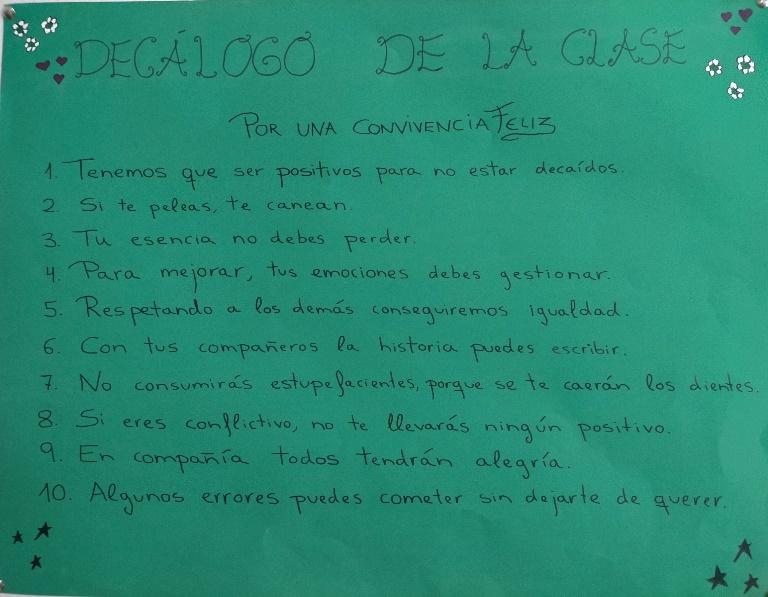 DECÁLOGO DE LA CLASE
POR UNA CONVIVENCIA FELIZ
1. Tenemos que ser positivos para no estar decaídos.
2. Si te peleas, te canean.
3. Tu esencia no debes perder.
4. Para mejorar, tus emociones debes gestionar.
5. Respetando a los demás conseguiremos igualdad.
6. Con tus compañeros la historia puedes escribir.
7. No consumirás estupefacientes, porque se te caerán los dientes.
8. Si eres conflictivo, no te llevarás ningún positivo.
9. En compañía todos tendrán alegría.
10. Algunos errores puedes cometer sin dejarte de querer.